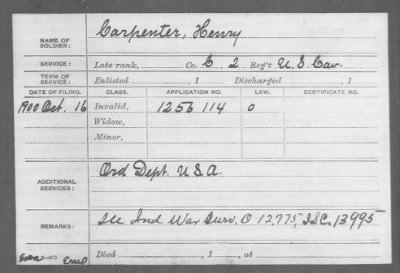 NAME OF SOLDIER: Carpenter, Henry
SERVICE: Late rank, Co. G. 2 Reg't U.S. Cav.
TERM OF SERVICE: Enlisted , 1 Discharged , 1
DATE OF FILING. CLASS. APPLICATION NO. LAW. CERTIFICATE NO.
1900 Oct. 16 Invalid, 1256 114 O
Widow,
Minor,
ADDITIONAL SERVICES: Ord Dept. U.S.A.
REMARKS: Ind War Surv. O 12,775, I.S.C. 13995
Died , 1 , at